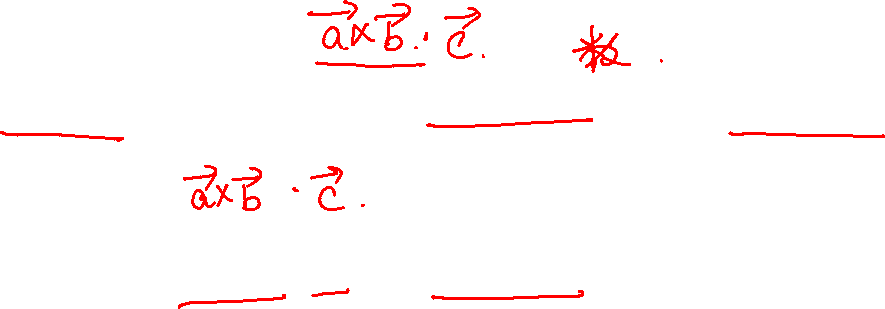 a⃗×b⃗·c⃗. 数.
a⃗×b⃗·c⃗.